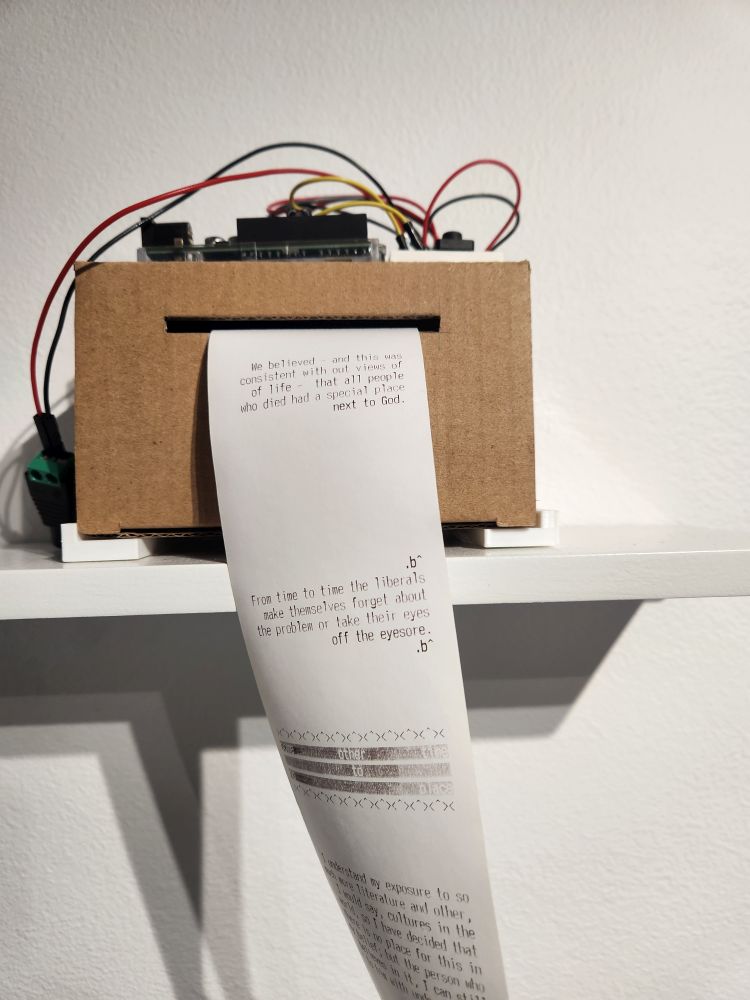 We believed - and this was
consistent with out views of
of life - that all people
who died had a special place
next to God.
.b^
From time to time the liberals
make themselves forget about
the problem or take their eyes
off the eyesore.
.b^
><^><^><^><^><^><^><^><^><^><
other time
to
place
><^><^><^><^><^><^><^><^><^><
I understand my exposure to so
more literature and other,
I would say, cultures in the
so I have decided that
is no place for this in
but the person who
in it, I can still
with